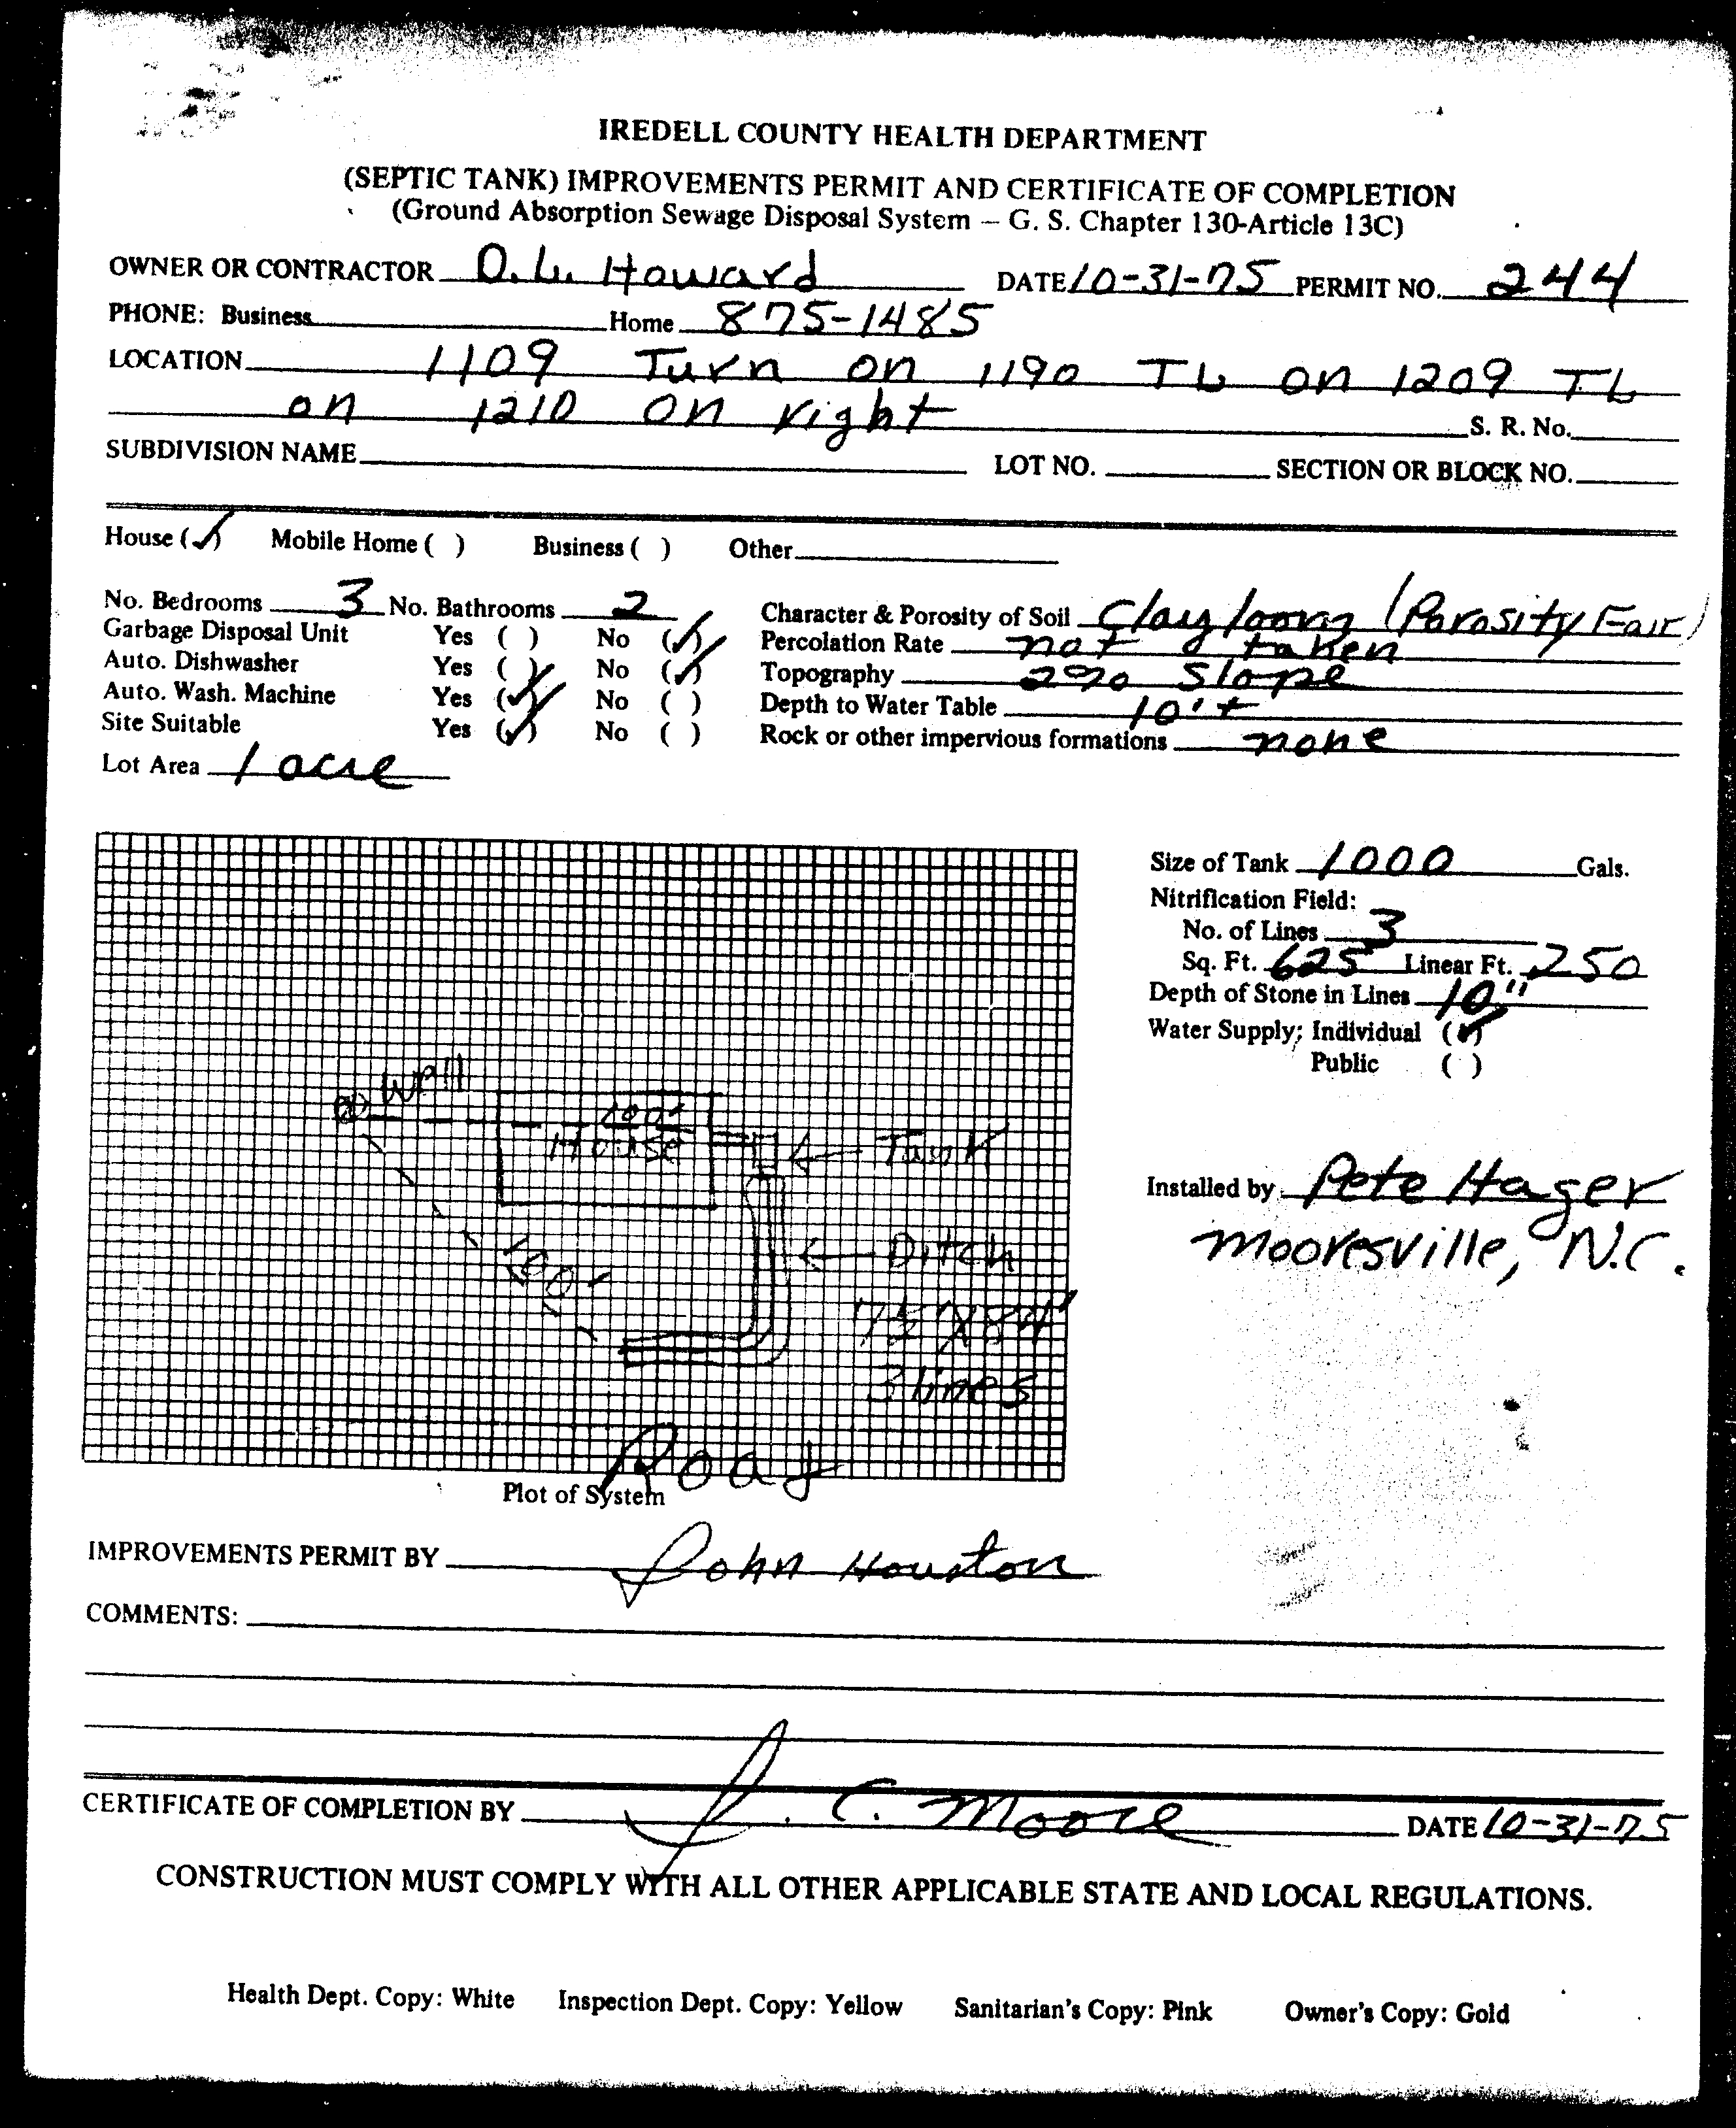 IREDELL COUNTY HEALTH DEPARTMENT
(SEPTIC TANK) IMPROVEMENTS PERMIT AND CERTIFICATE OF COMPLETION
(Ground Absorption Sewage Disposal System – G. S. Chapter 130-Article 13C)
OWNER OR CONTRACTOR O. L. Howard DATE 10-31-75 PERMIT NO. 244
PHONE: Business Home 875-1485
LOCATION 1109 Turn on 1190 TL on 1209 TL
on 1210 on right S. R. No.
SUBDIVISION NAME LOT NO. SECTION OR BLOCK NO.
House (✓) Mobile Home ( ) Business ( ) Other
No. Bedrooms 3 No. Bathrooms 2 Character & Porosity of Soil Clay loam (Porosity Fair)
Garbage Disposal Unit Yes ( ) No (✓) Percolation Rate not taken
Auto. Dishwasher Yes ( ) No (✓) Topography 2% Slope
Auto. Wash. Machine Yes (✓) No ( ) Depth to Water Table 10'+
Site Suitable Yes (✓) No ( ) Rock or other impervious formations none
Lot Area 1 acre
Size of Tank 1000 Gals.
Nitrification Field:
No. of Lines 3
Sq. Ft. 625 Linear Ft. 250
Depth of Stone in Lines 10"
Water Supply; Individual (✓)
Public ( )
Well
100'
House
Tank
Ditch
100'
3 lines
Road
Installed by Pete Hager
Mooresville, N.C.
Plot of System
IMPROVEMENTS PERMIT BY John Houston
COMMENTS:
CERTIFICATE OF COMPLETION BY J. C. Moore DATE 10-31-75
CONSTRUCTION MUST COMPLY WITH ALL OTHER APPLICABLE STATE AND LOCAL REGULATIONS.
Health Dept. Copy: White Inspection Dept. Copy: Yellow Sanitarian's Copy: Pink Owner's Copy: Gold